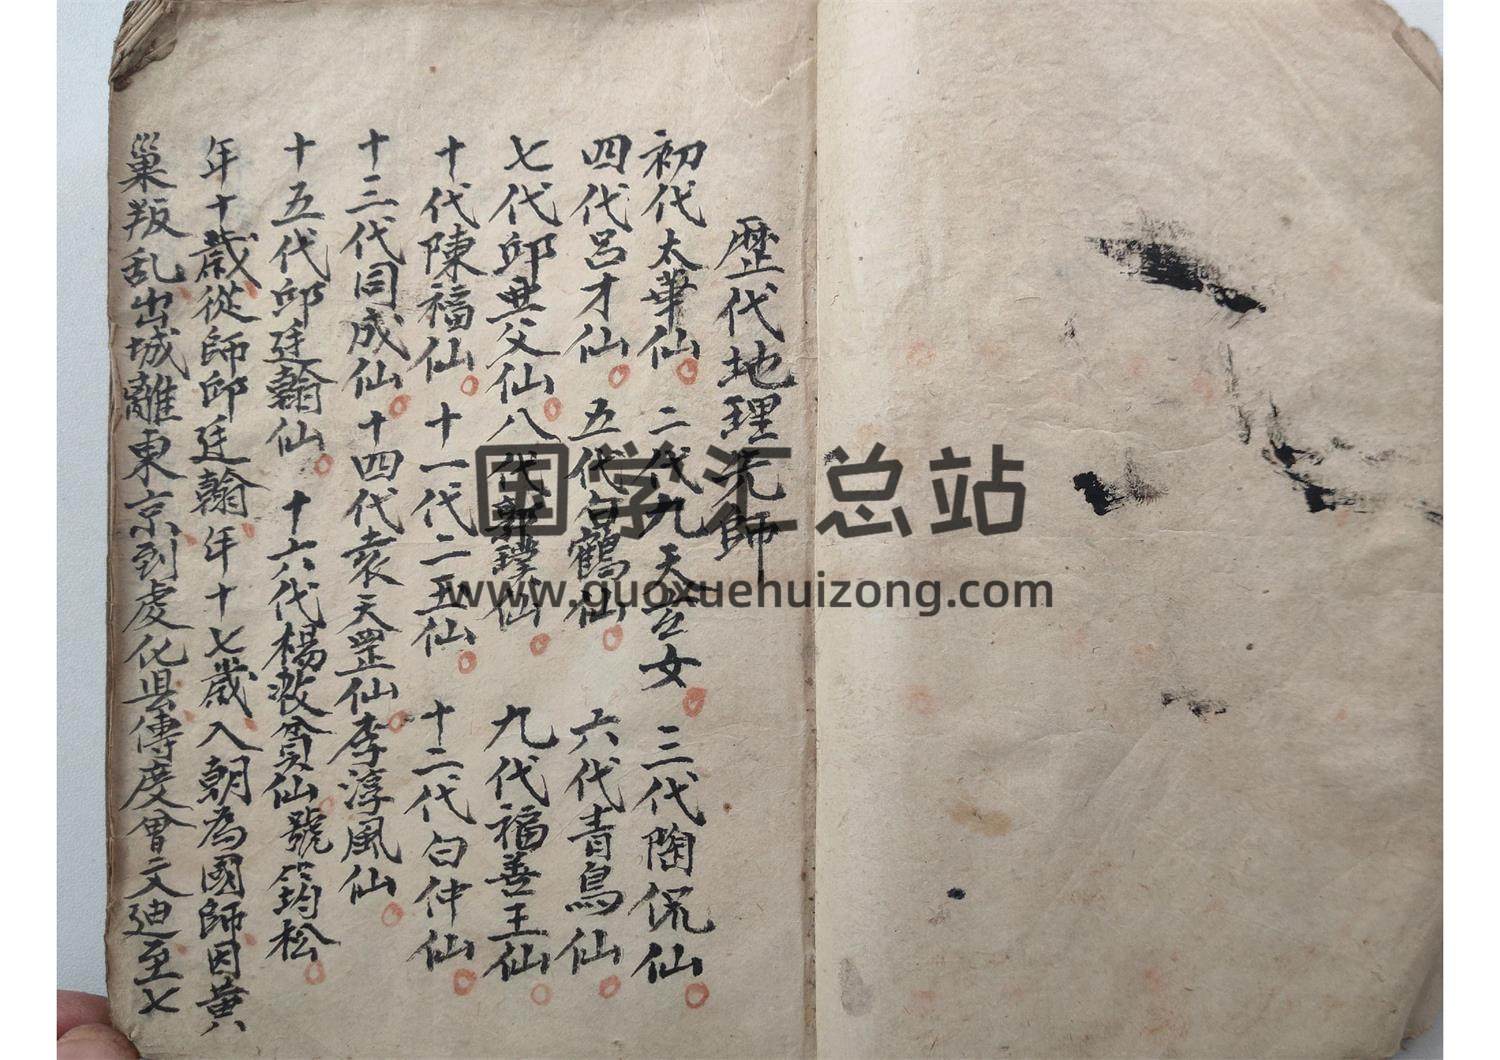 歷代地理先師
初代太華仙 二代九天玄女 三代陶侃仙
四代呂才仙 五代白鶴仙 六代青鳥仙
七代邱典父仙 八代郭鏷仙 九代福善王仙
十代陳福仙 十一代二五仙 十二代白仲仙
十三代同成仙 十四代袁天罡仙 李淳風仙
十五代邱廷翰仙 十六代楊救貧仙 號筠松
年十歲從師邱廷翰年十七歲入朝為國師因黃
巢叛乱出城離東京到虔化县傳度曾文迪至七
国学汇总站
www.guoxuehuizong.com